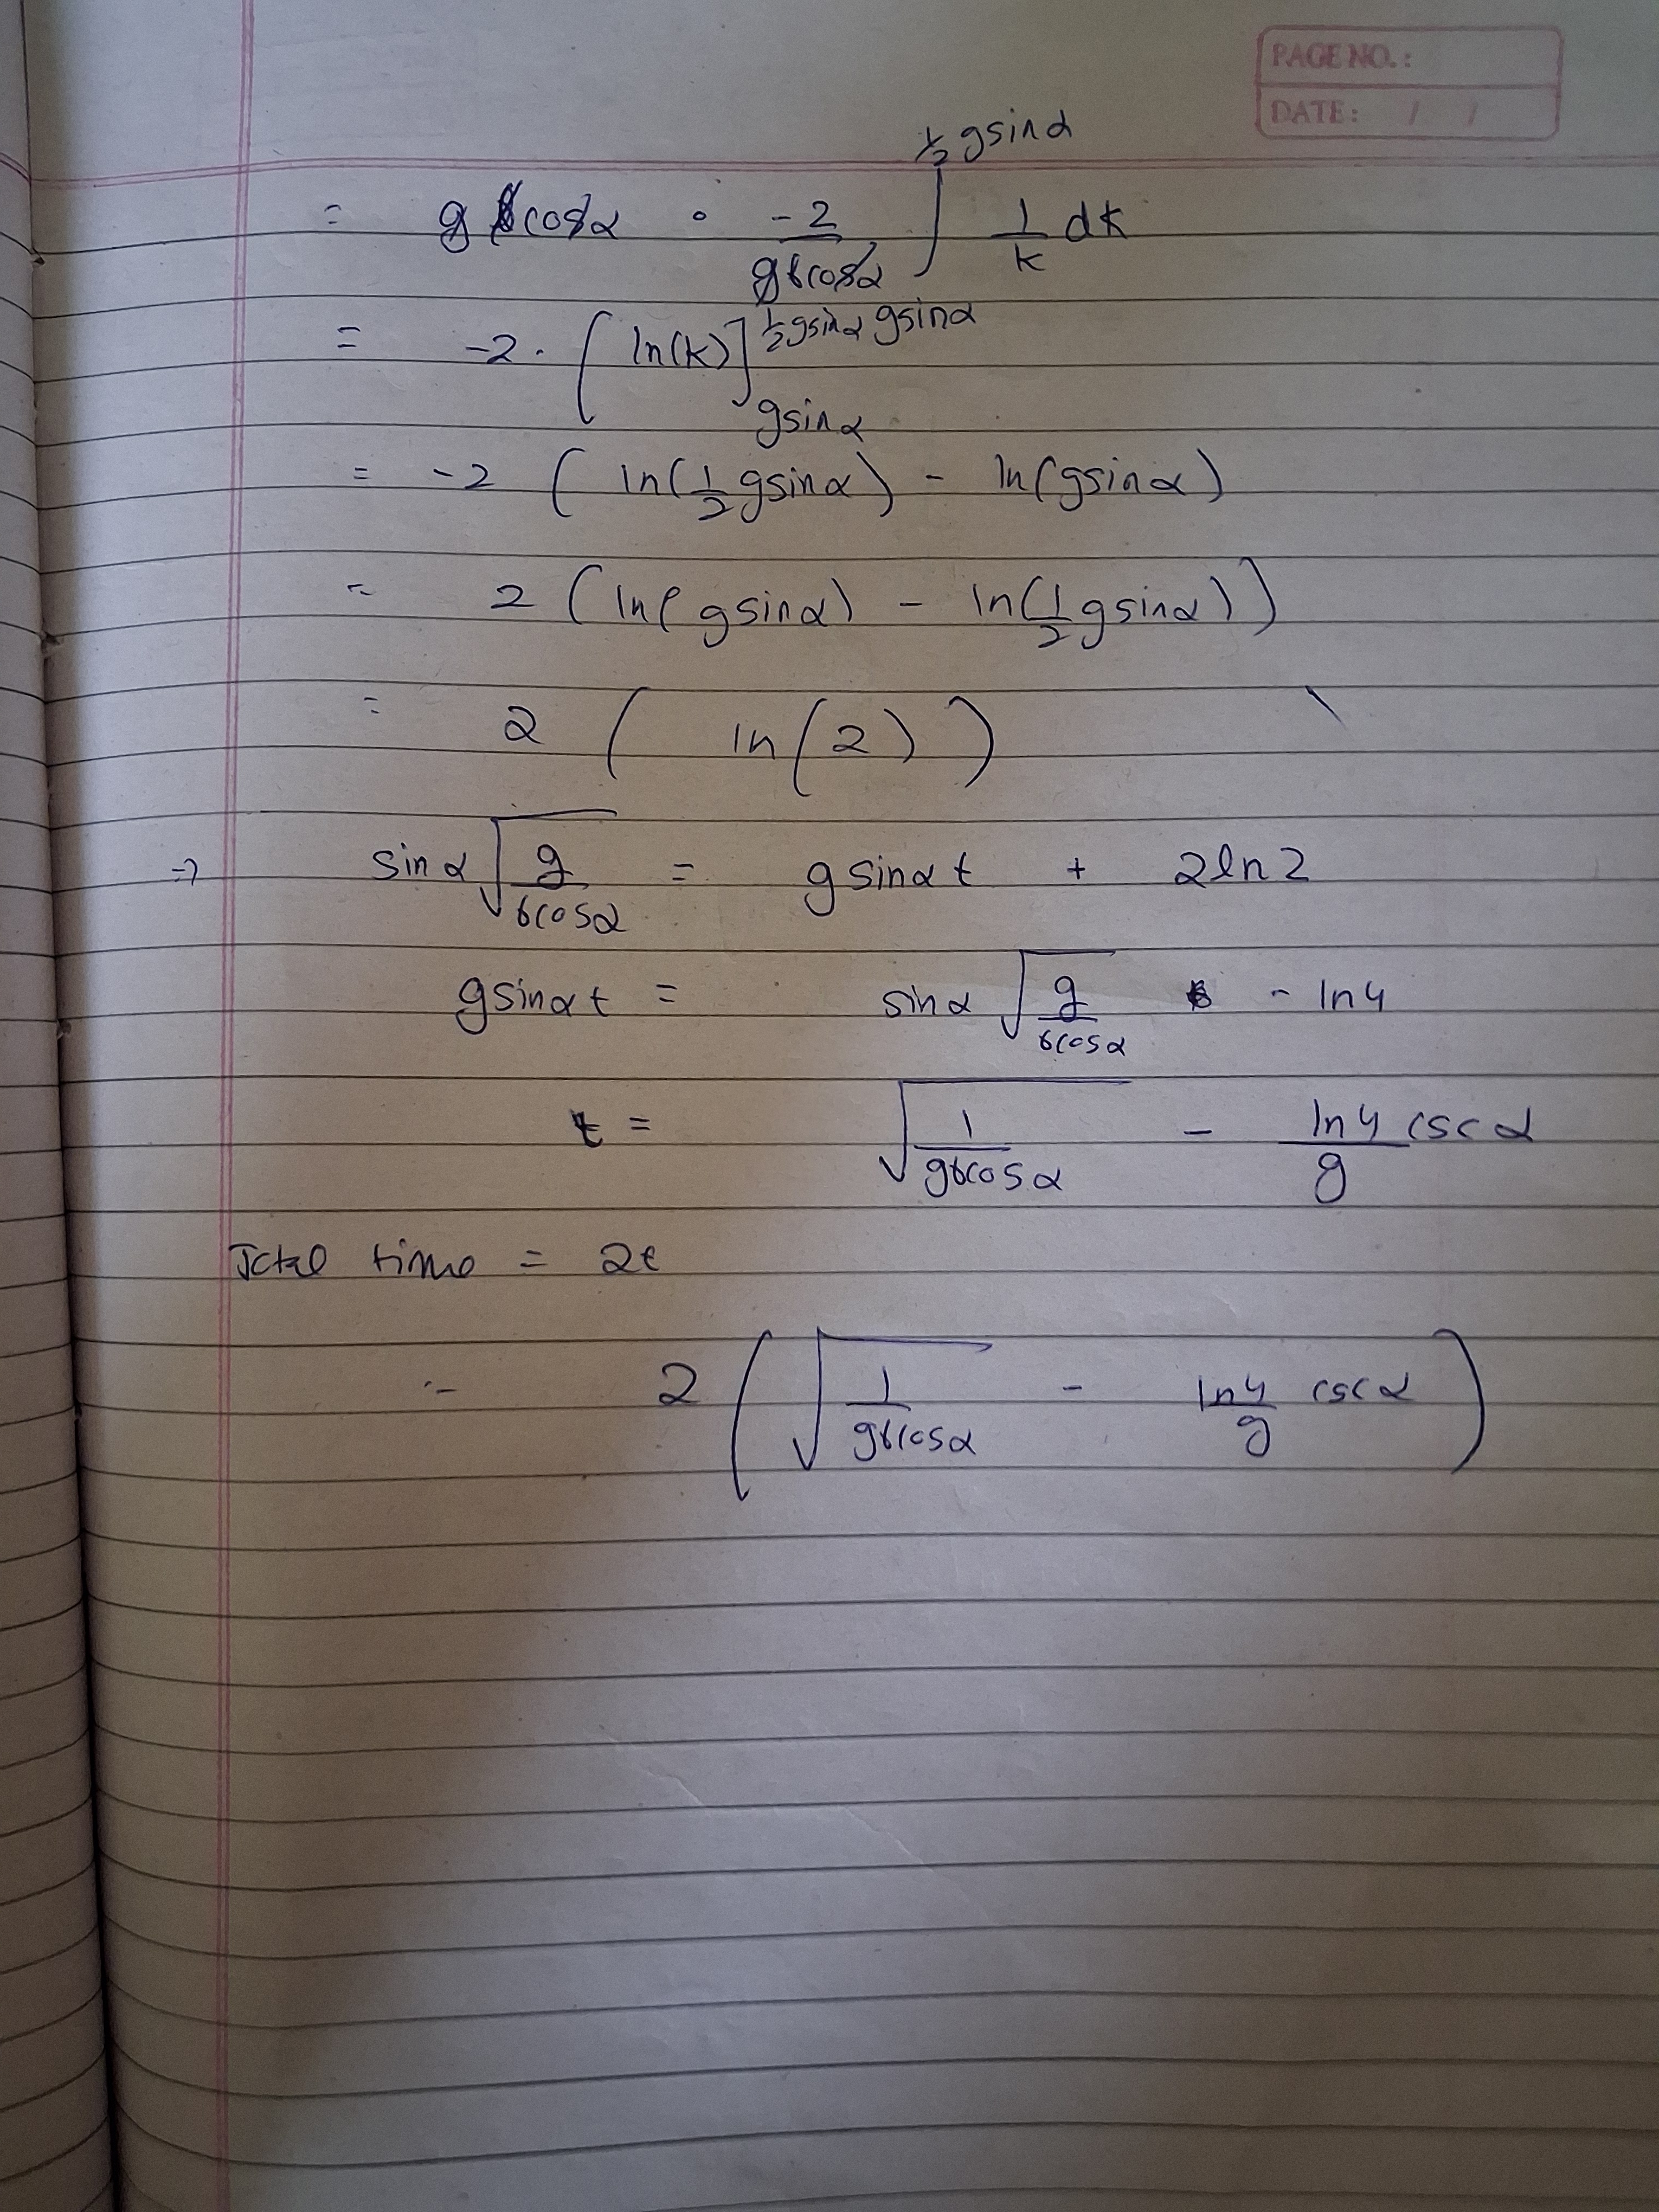 PAGE NO.:
DATE: / /
= g b cosα · -2/(g b cosα) ∫^(1/2 gsinα) 1/k dk
= -2 · [ln(k)]_(gsinα)^(1/2 gsinα) gsinα
= -2 (ln(1/2 gsinα) - ln(gsinα)
= 2 (ln(gsinα) - ln(1/2 gsinα))
= 2 ( ln(2) )
⇒ sinα √(g/(b cosα)) = g sinα t + 2ln2
gsinα t = sinα √(g/(b cosα)) - ln4
t = √(1/(g b cosα)) - ln4/g cscα
Total time = 2t
= 2 ( √(1/(g b cosα)) - ln4/g cscα )